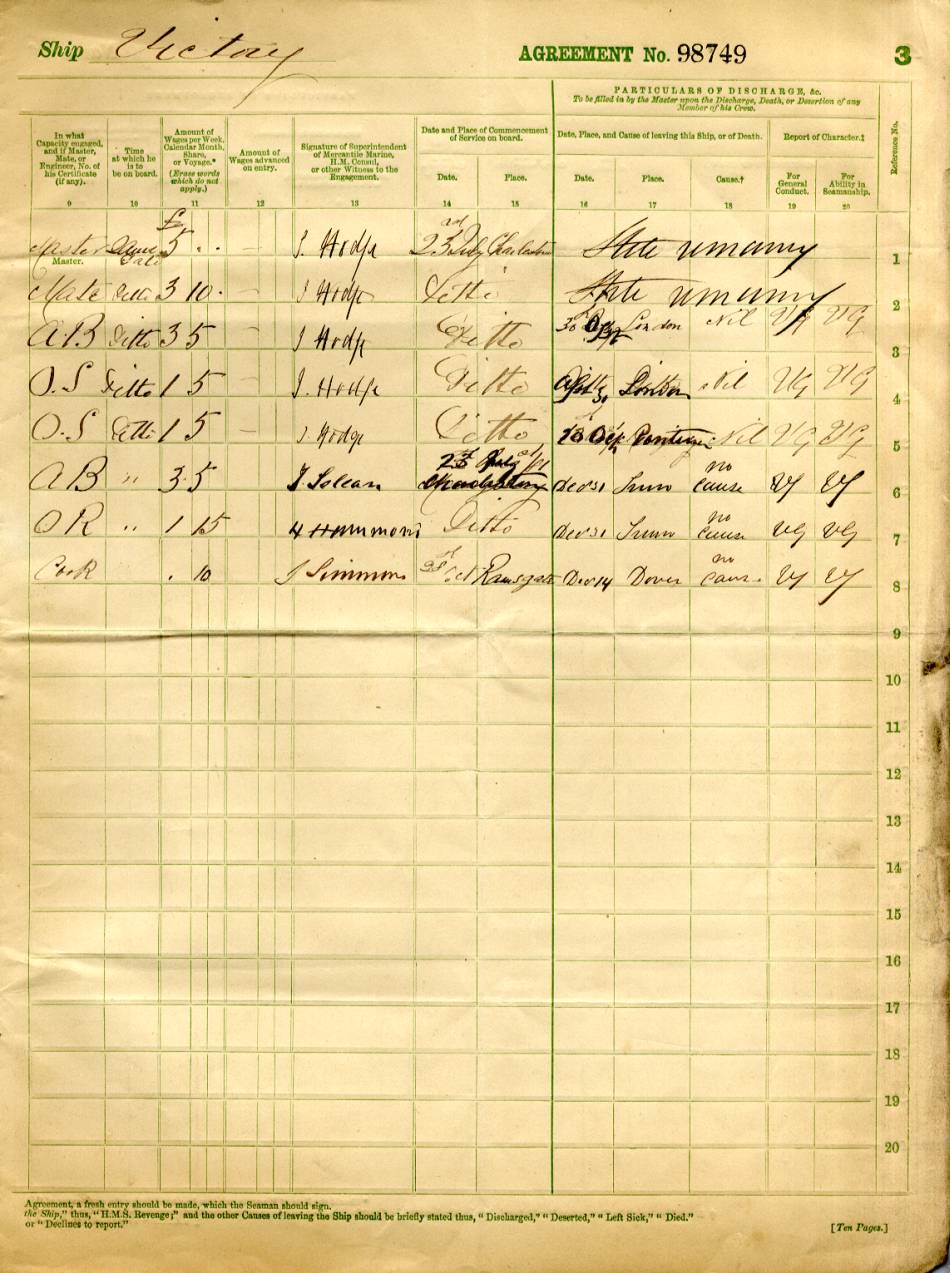 Ship Victory AGREEMENT No. 98749 3
PARTICULARS OF DISCHARGE, &c.
To be filled in by the Master upon the Discharge, Death, or Desertion of any
Member of his Crew.
In what
Capacity engaged,
and if Master,
Mate, or
Engineer, No. of
his Certificate
(if any).
Time
at which he
is to
be on board.
Amount of
Wages per Week,
Calendar Month,
Share,
or Voyage.*
(Erase words
which do not
apply.)
Amount of
Wages advanced
on entry.
Signature of Superintendent
of Mercantile Marine,
H.M. Consul,
or other Witness to the
Engagement.
Date and Place of Commencement
of Service on board.
Date. Place.
Date, Place, and Cause of leaving this Ship, or of Death.
Date. Place. Cause.†
Report of Character.‡
For
General
Conduct.
For
Ability in
Seamanship.
Reference No.
9 10 11 12 13 14 15 16 17 18 19 20
£
Master 5 . . — J. Hodge 23rd July 1
Master.
Mate Ditto 3 10 . — J Hodge Ditto 2
A B Ditto 3 5 — J Hodge Ditto 30 London Nil VG VG 3
O.S Ditto 1 5 — J. Hodge Ditto London Nil VG VG 4
O.S Ditto 1 5 J. Hodge Ditto Nil VG VG 5
A B " 3 5 23rd July Dec 31 no cause VG VG 6
" 1 15 Hammond Ditto Dec 31 no cause VG VG 7
Cook . 10 J Simmons Oct Ramsgate Dec 14 Dover no cause VG VG 8
9
10
11
12
13
14
15
16
17
18
19
20
Agreement, a fresh entry should be made, which the Seaman should sign.
the Ship," thus, "H.M.S. Revenge;" and the other Causes of leaving the Ship should be briefly stated thus, "Discharged," "Deserted," "Left Sick," "Died."
or "Declines to report."
[Ten Pages.]